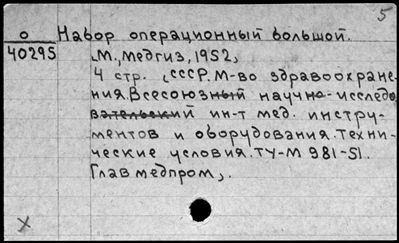 5
О Набор операционный большой.
40295 М., Медгиз, 1952,
4 стр. (СССР. М-во здравоохране-
ния. Всесоюзный научно-исследо
вательский ин-т мед. инстру-
ментов и оборудования. Техни-
ческие условия. ТУ-М 981-51.
Главмедпром).
X